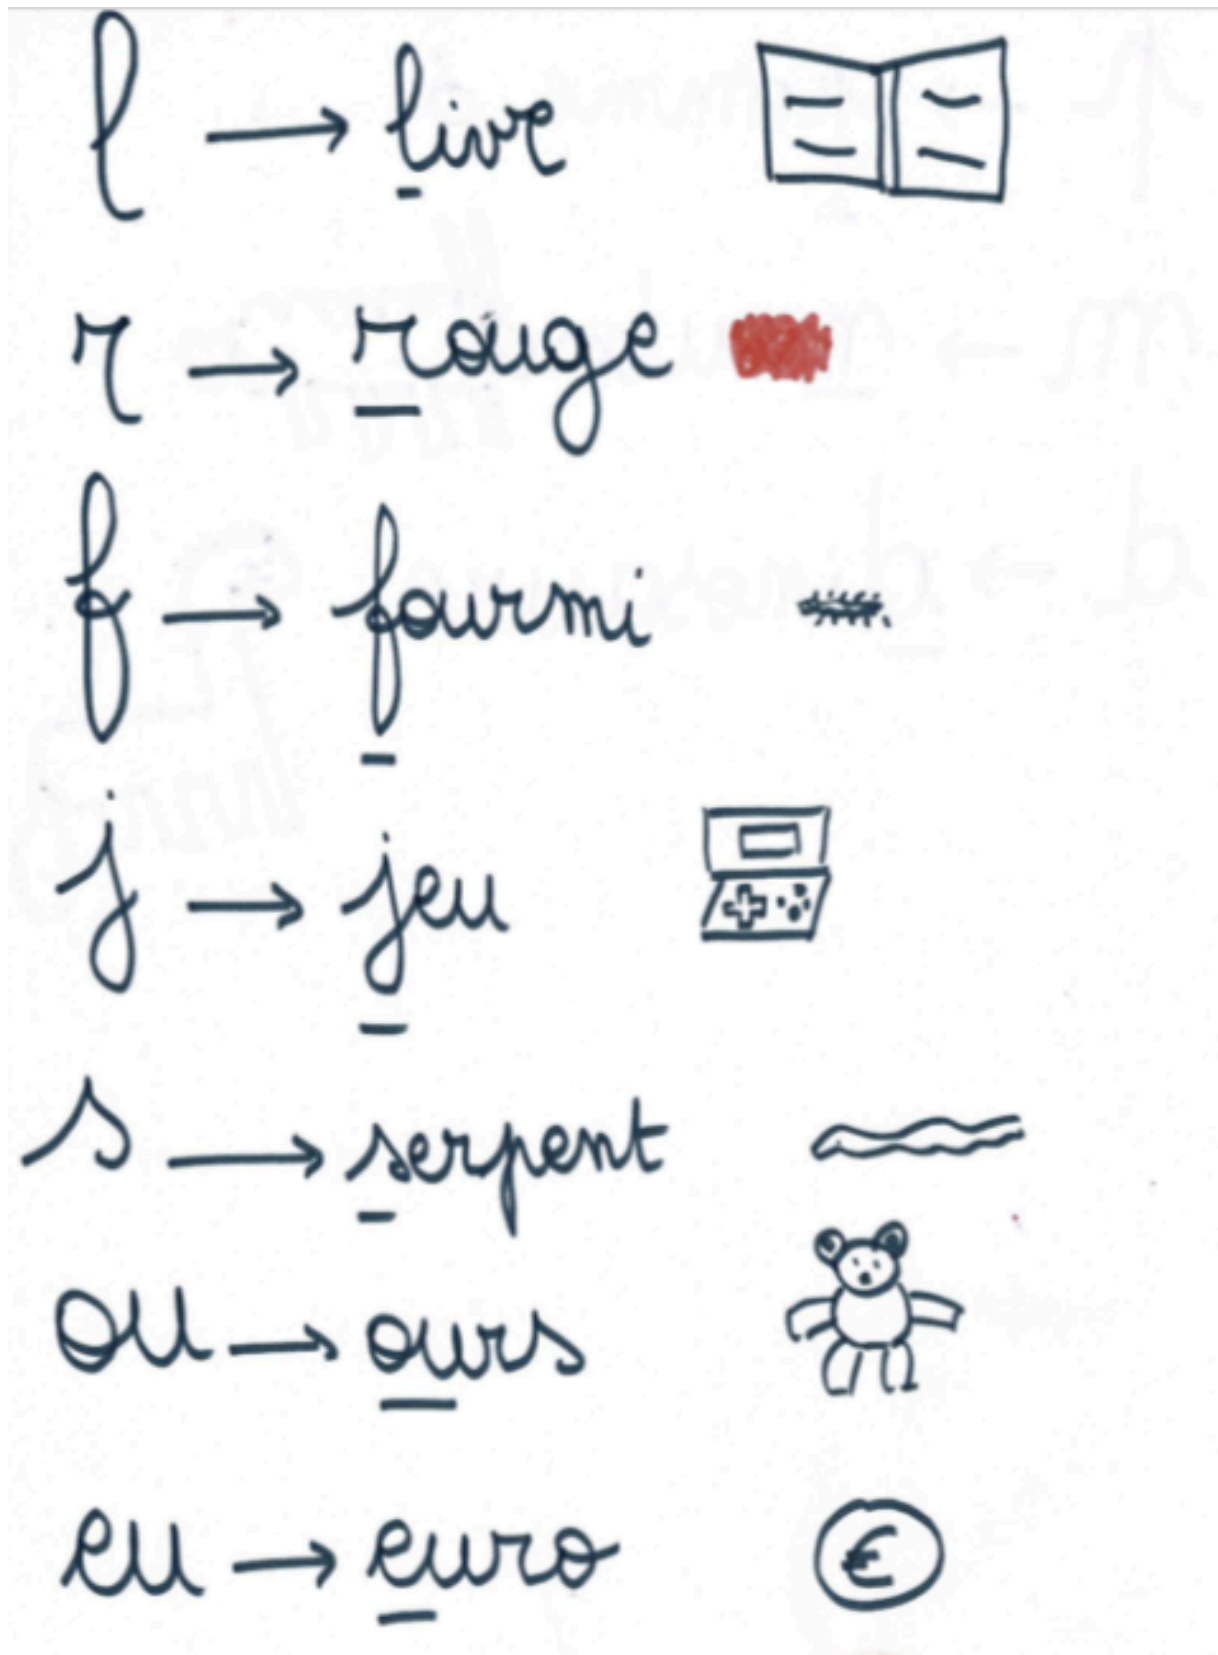 l → livre
r → rouge
f → fourmi
j → jeu
s → serpent
ou → ours
eu → euro €